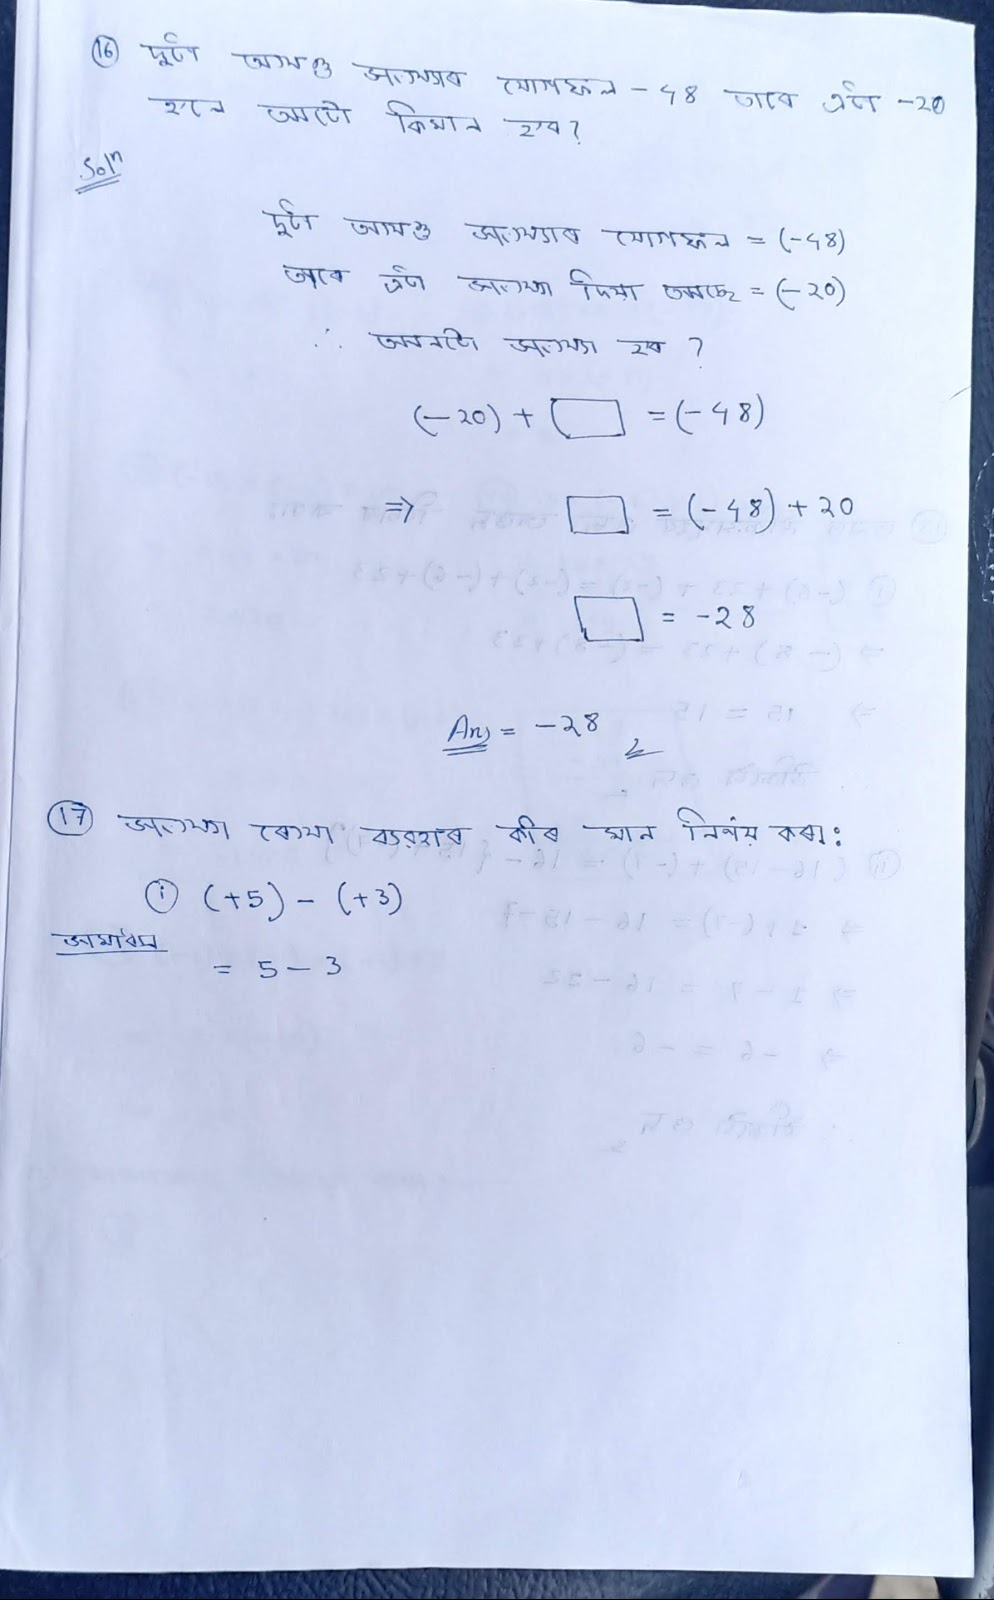 16 দুটা অখণ্ড সংখ্যাৰ যোগফল -48 তাৰে এটা -20
হ'লে আনটো কিমান হ'ব?
Solⁿ
দুটা অখণ্ড সংখ্যাৰ যোগফল = (-48)
তাৰে এটা সংখ্যা দিয়া আছে = (-20)
∴ আনটো সংখ্যা হ'ব ?
(-20) + □ = (-48)
⇒ □ = (-48) + 20
□ = -28
Ans = -28
17 সংখ্যা ৰেখা ব্যৱহাৰ কৰি মান নিৰ্ণয় কৰা:
i (+5) - (+3)
সমাধান
= 5 - 3